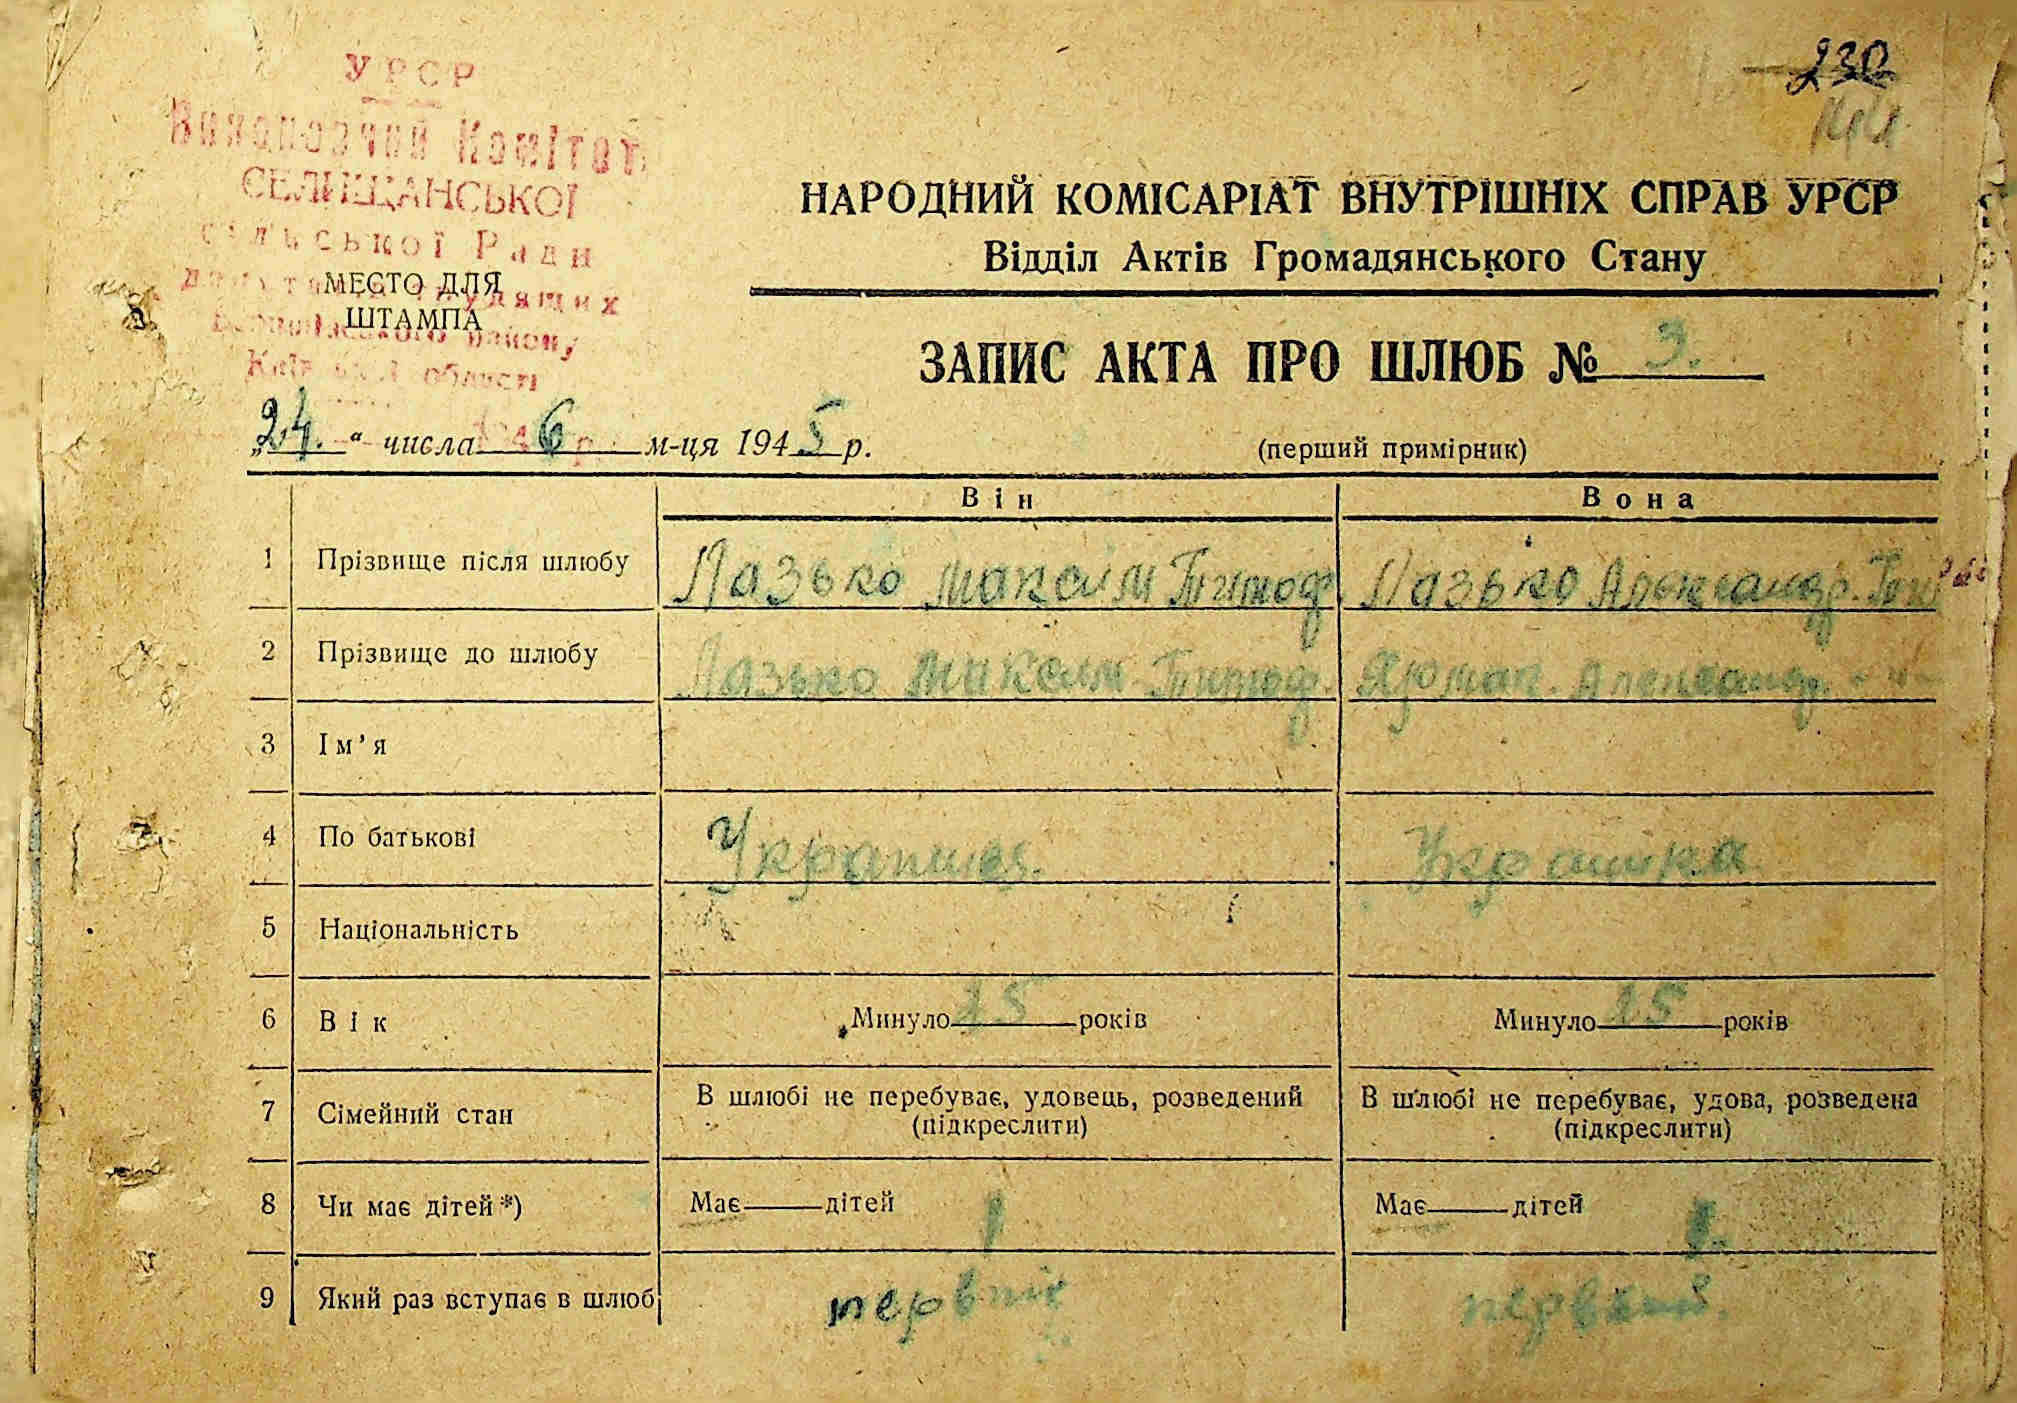 230
УРСР
Виконавчий Комітет
СЕЛИЩАНСЬКОЇ
сільської Ради
депутатів трудящих
району
Київської області
МЕСТО ДЛЯ
ШТАМПА
НАРОДНИЙ КОМІСАРІАТ ВНУТРІШНІХ СПРАВ УРСР
Відділ Актів Громадянського Стану
ЗАПИС АКТА ПРО ШЛЮБ № 3.
„24.“ числа 6 м-ця 1945 р.
(перший примірник)
Він Вона
1 Прізвище після шлюбу Лазько Максим Тимоф. Лазько Александр.
2 Прізвище до шлюбу Лазько Максим Тимоф. Александр. -"-
3 Ім’я
4 По батькові Украинец. Украинка
5 Національність
6 Вік Минуло 25 років Минуло 25 років
7 Сімейний стан В шлюбі не перебуває, удовець, розведений (підкреслити) В шлюбі не перебуває, удова, розведена (підкреслити)
8 Чи має дітей *) Має дітей 1 Має дітей 1.
9 Який раз вступає в шлюб первий первый.